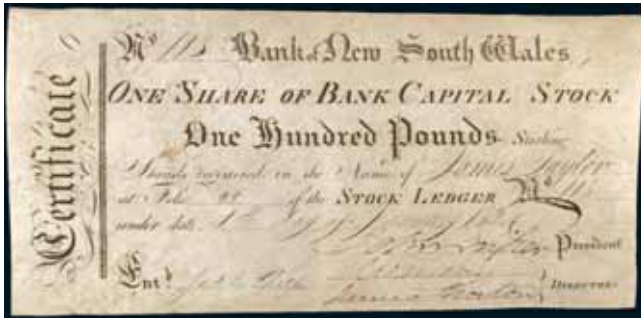 Certificate
No 115 Bank of New South Wales
ONE SHARE OF BANK CAPITAL STOCK
One Hundred Pounds Sterling
Stands registered in the Name of James Taylor
at Folio of the STOCK LEDGER No 115
under date
President
Entd
James Norton DIRECTORS